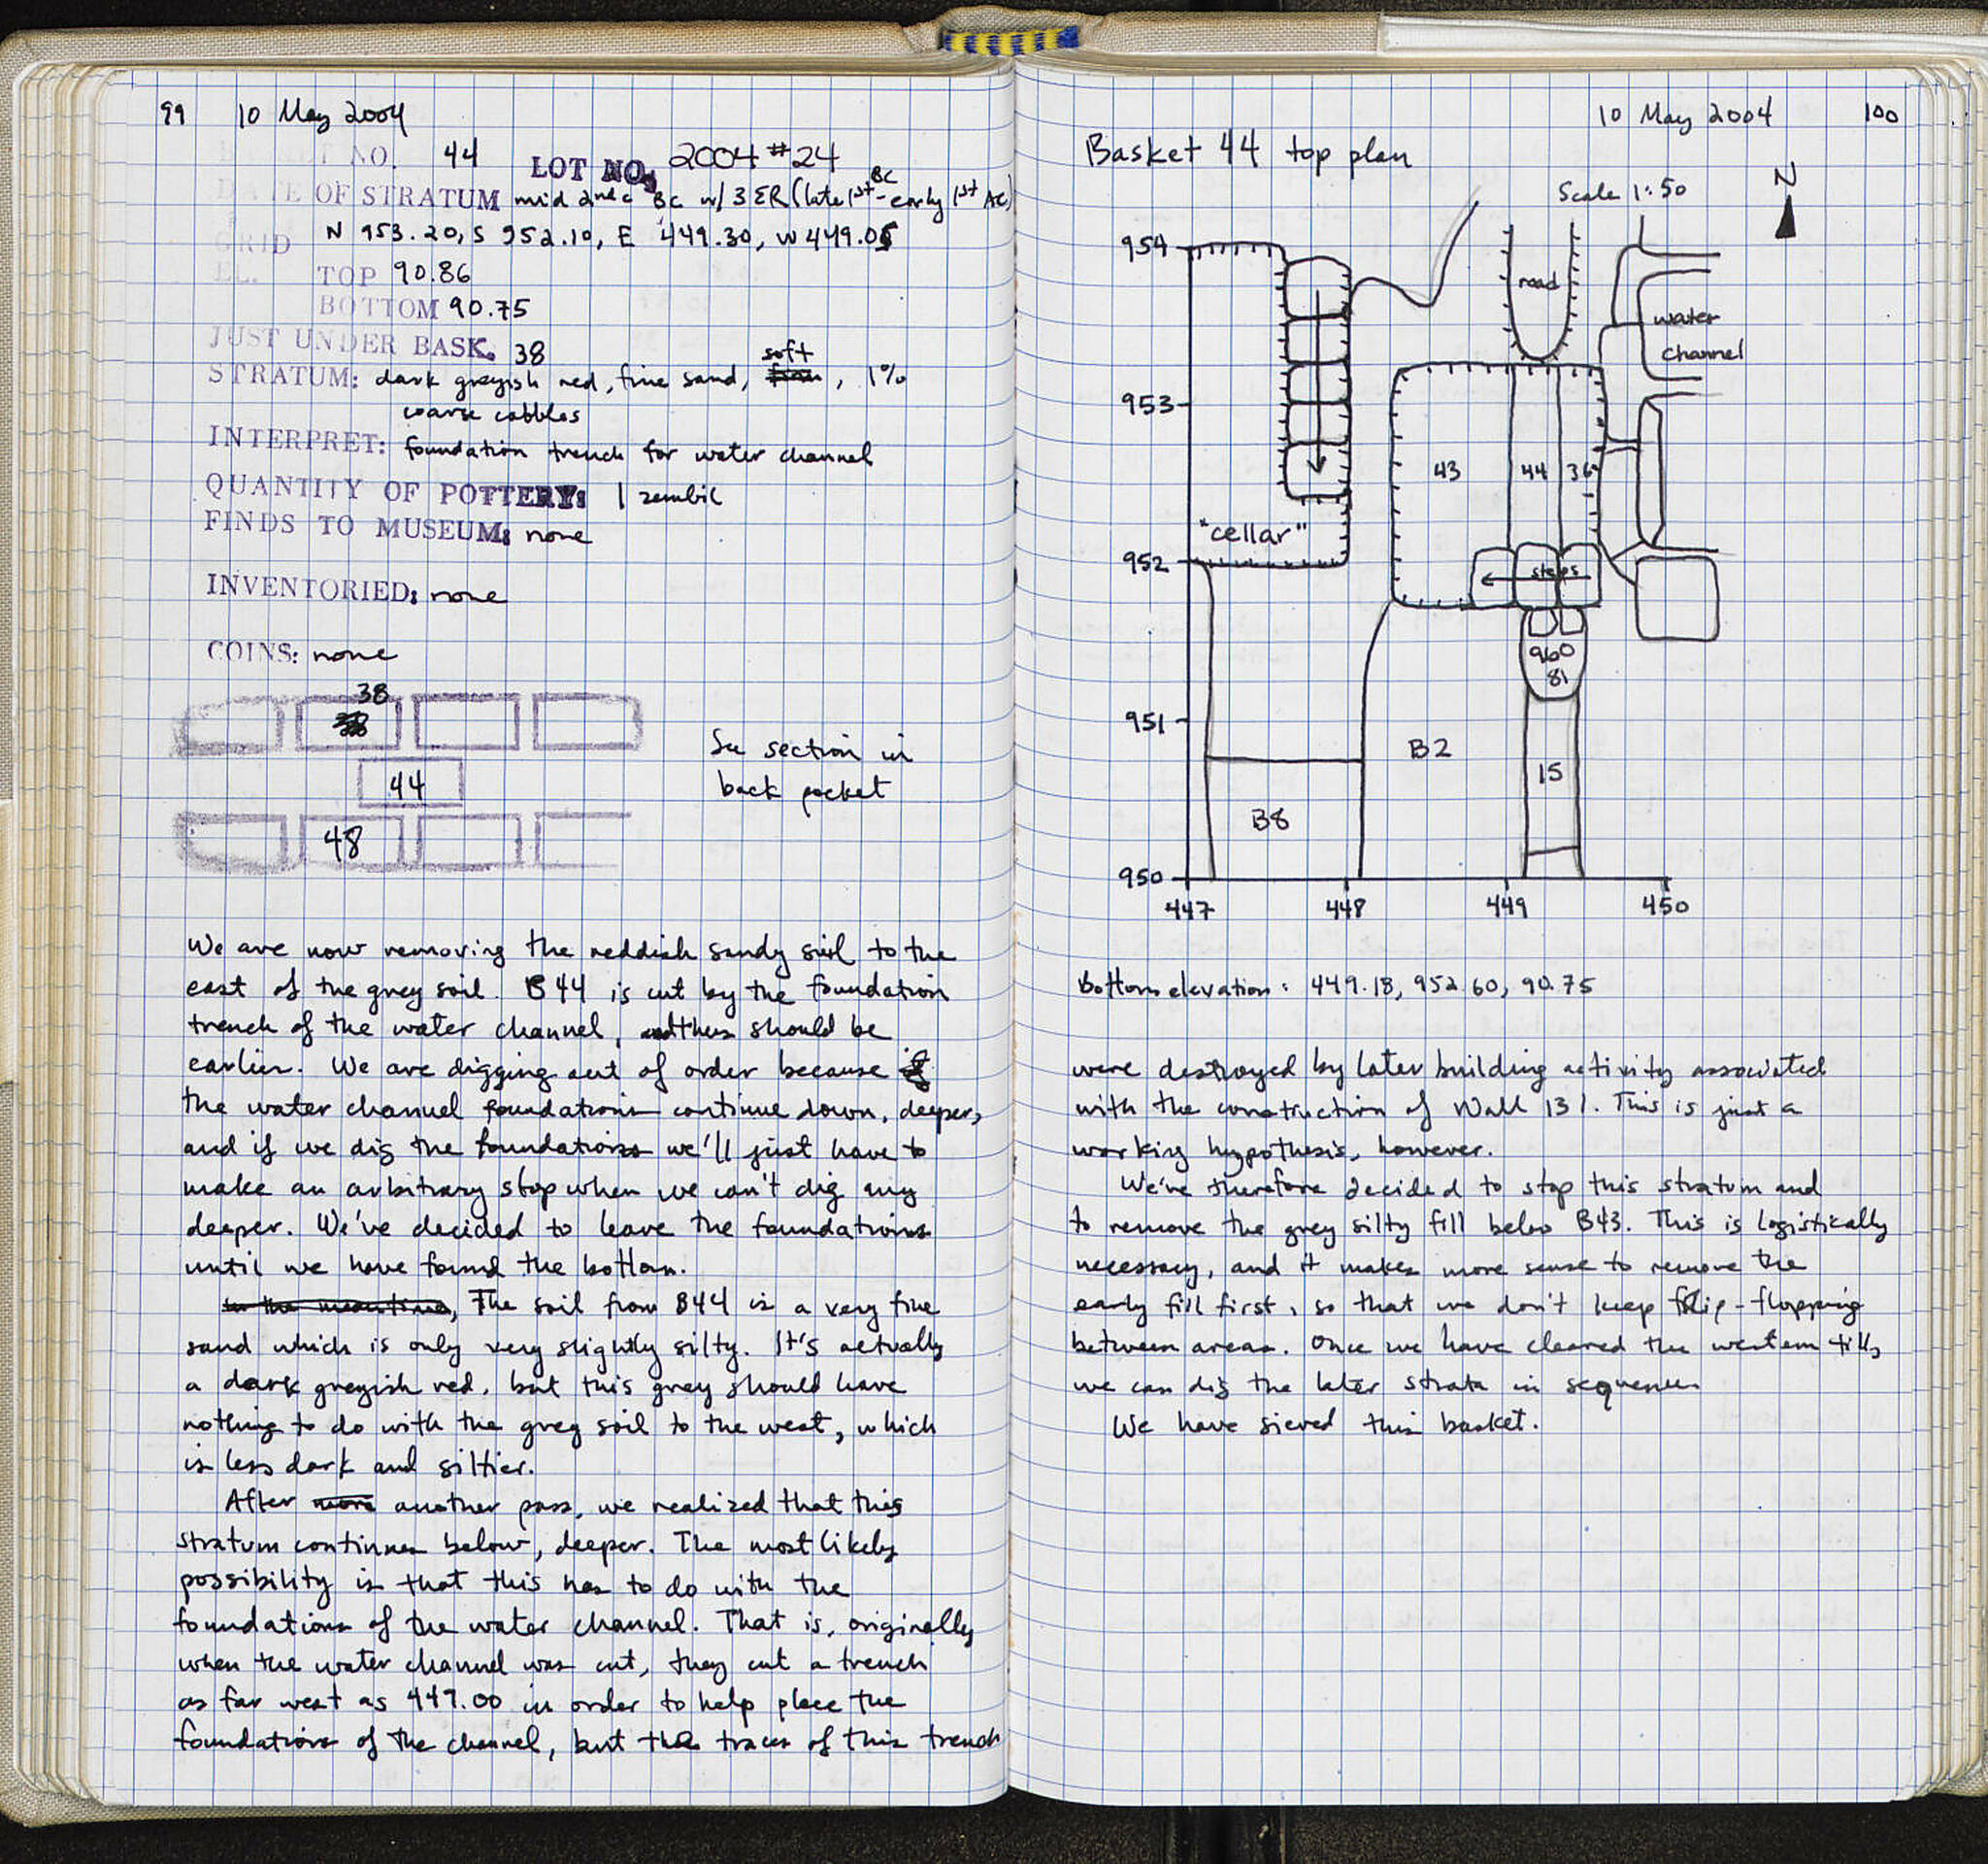 99 10 May 2004
BASKET NO. 44 LOT NO. 2004 #24
DATE OF STRATUM mid 2nd c BC w/ 3 ER (late 1st BC - early 1st AC)
GRID N 953.20, S 952.10, E 449.30, W 449.05
EL. TOP 90.86
BOTTOM 90.75
JUST UNDER BASK. 38
STRATUM: dark greyish red, fine sand, soft, 1%
coarse cobbles
INTERPRET: foundation trench for water channel
QUANTITY OF POTTERY: 1 zembil
FINDS TO MUSEUM: none
INVENTORIED: none
COINS: none
38
44
48
See section in
back pocket
We are now removing the reddish sandy soil to the
east of the grey soil. B44 is cut by the foundation
trench of the water channel, and thus should be
earlier. We are digging out of order because
the water channel foundations continue down, deeper,
and if we dig the foundations we'll just have to
make an arbitrary stop when we can't dig any
deeper. We've decided to leave the foundations
until we have found the bottom.
In the meantime, The soil from B44 is a very fine
sand which is only very slightly silty. It's actually
a dark greyish red, but this grey should have
nothing to do with the grey soil to the west, which
is less dark and siltier.
After more another pass, we realized that this
stratum continues below, deeper. The most likely
possibility is that this has to do with the
foundations of the water channel. That is, originally
when the water channel was cut, they cut a trench
as far west as 449.00 in order to help place the
foundations of the channel, but the traces of this trench
10 May 2004 100
Basket 44 top plan
N
Scale 1:50
954
road
water
channel
953
43 44 36
"cellar"
952
steps
960
81
951
B2
15
B8
950
447 448 449 450
Bottom elevation: 449.18, 952.60, 90.75
were destroyed by later building activity associated
with the construction of Wall 131. This is just a
working hypothesis, however.
We've therefore decided to stop this stratum and
to remove the grey silty fill below B43. This is logistically
necessary, and it makes more sense to remove the
early fill first, so that we don't keep flip-flopping
between areas. Once we have cleared the western fill,
we can dig the later strata in sequence.
We have sieved this basket.